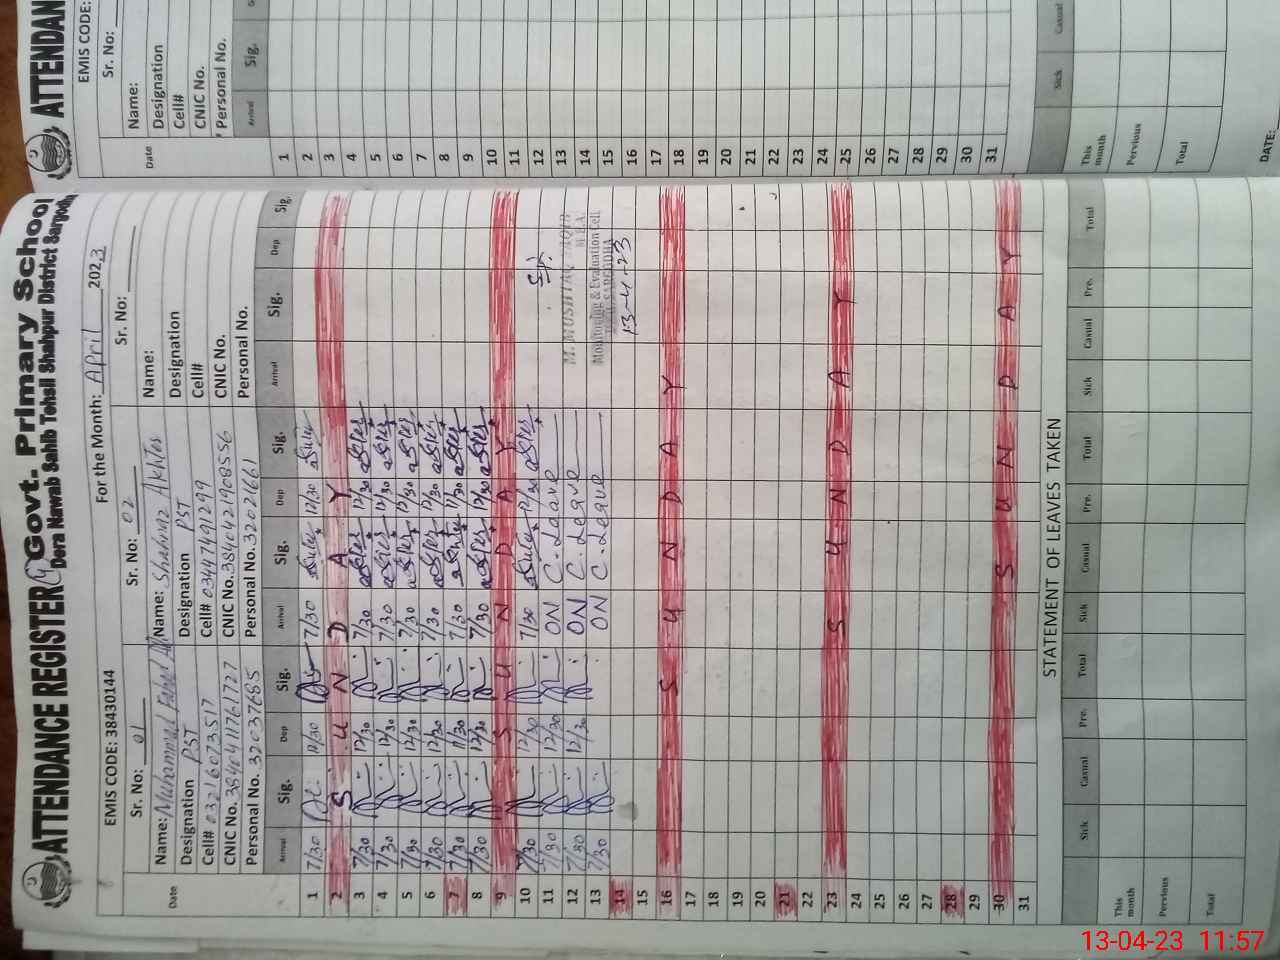 ATTENDANCE REGISTER Govt. Primary School
Dera Nawab Sahib Tehsil Shahpur District Sargodha
EMIS CODE: 38430144 For the Month: April 2023
Sr. No: 01 Sr. No: 02 Sr. No:
Name: Muhammad Fahad Name: Shahnaz Akhter Name:
Designation PST Designation PST Designation
Cell# 03216073517 Cell# 03447491299 Cell#
CNIC No. 3840411761727 CNIC No. 3840421908556 CNIC No.
Personal No. 32037685 Personal No. 32021661 Personal No.
Date Arrival Sig. Dep Sig. Arrival Sig. Dep Sig. Arrival Sig. Dep Sig.
1 7/30 12/30 7/30 12/30
2 S U N D A Y
3 7/30 12/30 7/30 12/30
4 7/30 12/30 7/30 12/30
5 7/30 12/30 7/30 12/30
6 7/30 12/30 7/30 12/30
7 7/30 11/30 7/30 11/30
8 7/30 12/30 7/30 12/30
9 S U N D A Y
10 7/30 12/30 7/30 12/30
11 7/30 12/30 ON C. Leave
12 7/30 12/30 ON C. Leave M. MUSHTAQ M.E.A.
13 7/30 ON C. Leave Monitoring & Evaluation Cell SARGODHA
14 13-4-23
15
16 S U N D A Y
17
18
19
20
21
22
23 S U N D A Y
24
25
26
27
28
29
30 S U N D A Y
31
STATEMENT OF LEAVES TAKEN
Sick Casual Pre. Total Sick Casual Pre. Total Sick Casual Pre. Total
This month
Pervious
Total
ATTENDAN
EMIS CODE:
Sr. No:
Name:
Designation
Cell#
CNIC No.
Personal No.
Date Arrival Sig.
1
2
3
4
5
6
7
8
9
10
11
12
13
14
15
16
17
18
19
20
21
22
23
24
25
26
27
28
29
30
31
Sick Casual
This month
Pervious
Total
DATE:
13-04-23 11:57